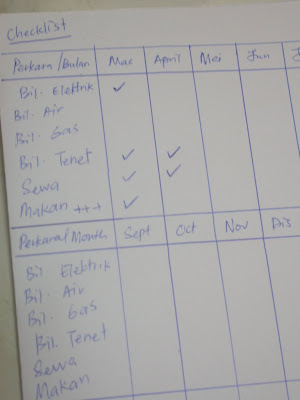 Checklist
Perkara / Bulan Mac April Mei Jun
Bil. Elektrik ✓
Bil. Air
Bil. Gas
Bil. Tenet ✓ ✓
Sewa ✓ ✓
Makan +++ ✓
Perkara/Month Sept Oct Nov Dis
Bil Elektrik
Bil. Air
Bil. Gas
Bil. Tenet
Sewa
Makan